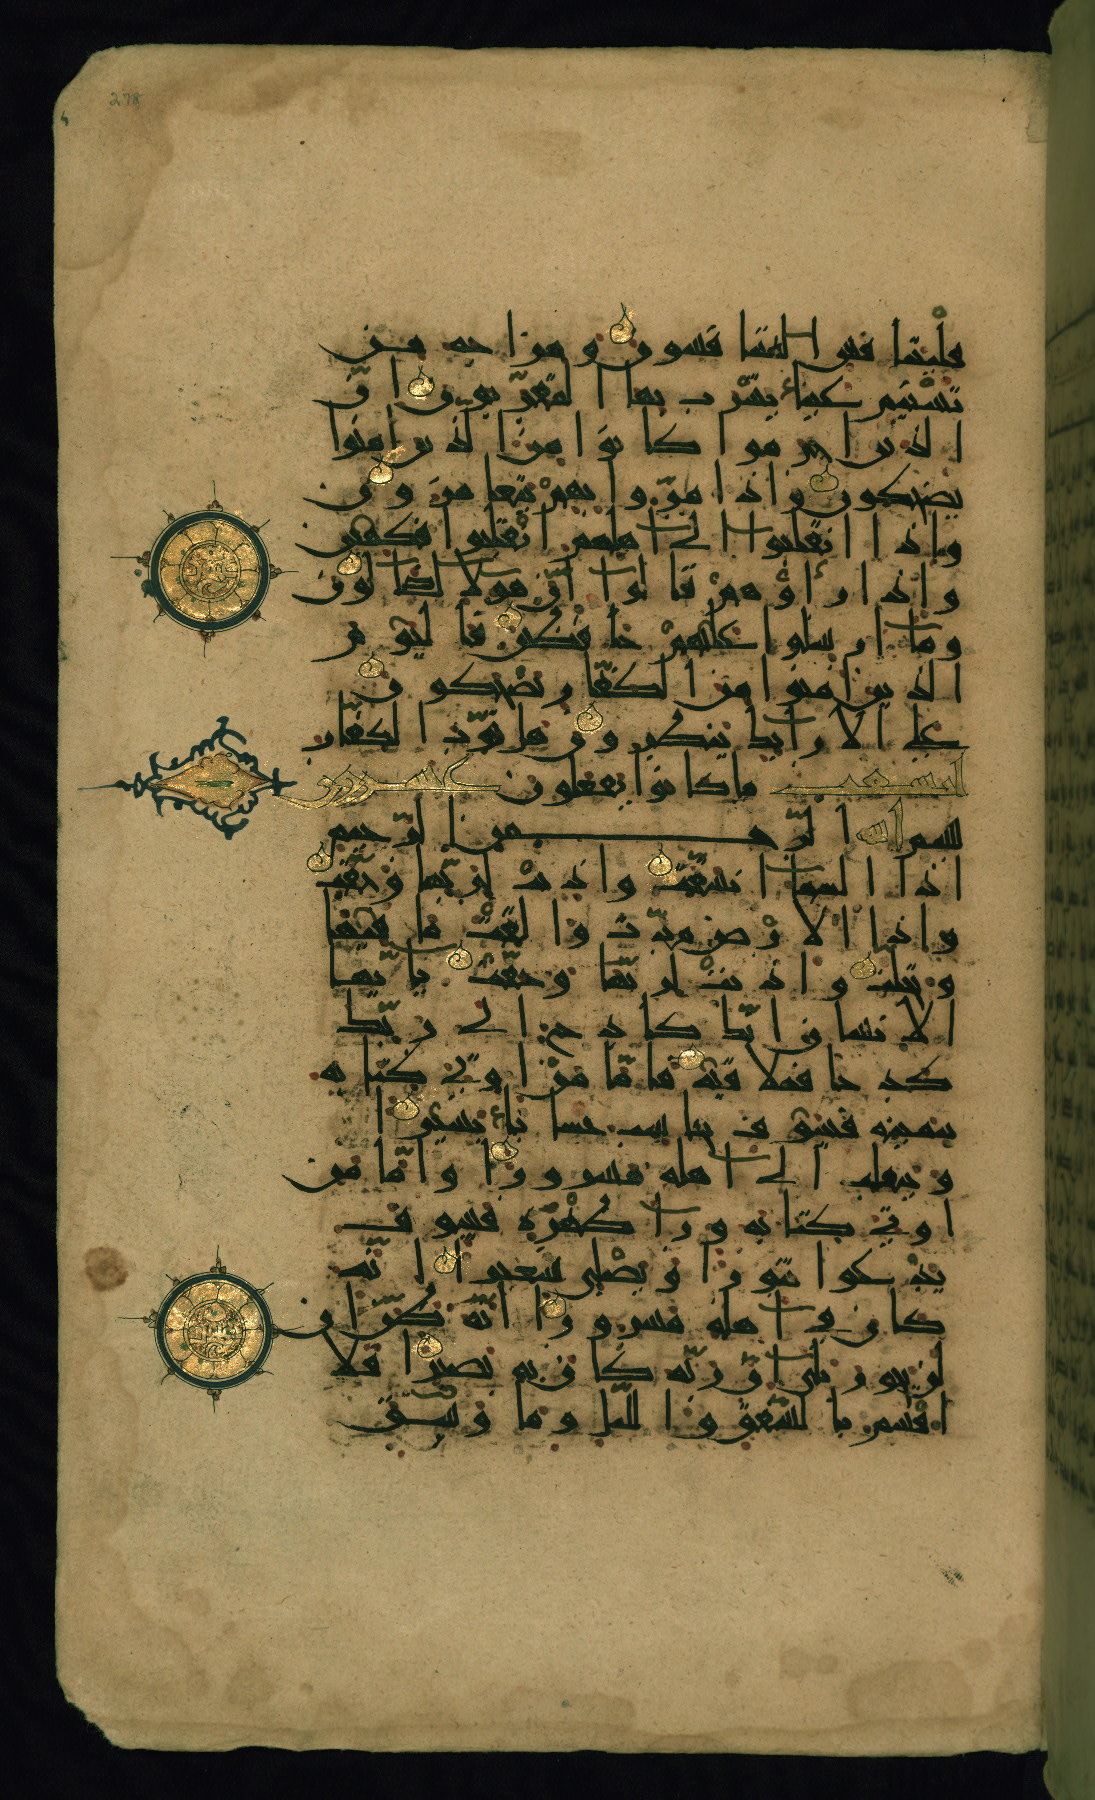 278
فليتنافس المتنافسون ومزاجه من
تسنيم عينا يشرب بها المقربون ان
الذين اجرموا كانوا من الذين امنوا
يضحكون واذا مروا بهم يتغامزون
واذا انقلبوا الى اهلهم انقلبوا فكهين
واذا راوهم قالوا ان هولا لضالون
وما ارسلوا عليهم حافظين فاليوم
الذين امنوا من الكفار يضحكون
على الارايك ينظرون هل ثوب الكفار
ما كانوا يفعلون
بسم الله الرحمن الرحيم
اذا السما انشقت واذنت لربها وحقت
واذا الارض مدت والقت ما فيها
وتخلت واذنت لربها وحقت يايها
الانسان انك كادح الى ربك
كدحا فملاقيه فاما من اوتي كتابه
بيمينه فسوف يحاسب حسابا يسيرا
وينقلب الى اهله مسرورا واما من
اوتي كتابه ورا ظهره فسوف
يدعوا ثبورا ويصلى سعيرا انه
كان في اهله مسرورا انه ظن ان
لن يحور بلى ان ربه كان به بصيرا فلا
اقسم بالشفق والليل وما وسق